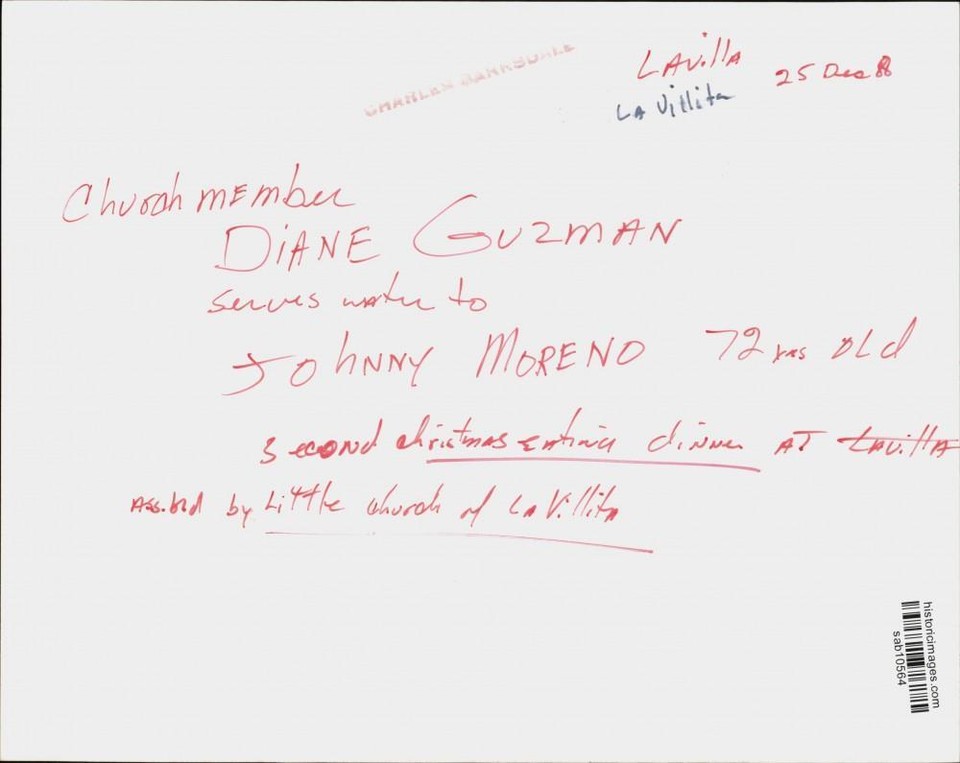 CHARLES BARKSDALE
LAvilla 25 Dec 8
LA Villita
Church member
DiANE GUZMAN
serves water to
JOhNNY MORENO 72 yrs OLd
second christmas dinner AT LAvillA
by Little church of LA Villita
historicimages.com
sab10564